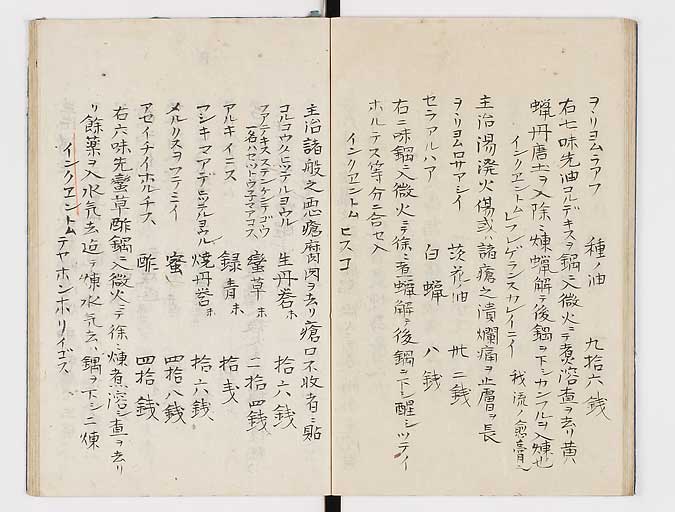 ヲヽリヨムラアフ 種ノ油 九拾六銭
右七味先油コルデキスヲ鍋ニ入微火ニテ煮溶查ヲ去リ黄
蝋丹唐土ヲ入除ニ煉蝋解テ後鍋ヲ下シカンフルヲ入煉也
インクヱントム レフレゲランスカレイニイ 我流ノ愈膏ニ
主治湯溌火傷或ハ諸瘡之潰爛痛ヲ止膚ヲ長
ヲヽリヨムロサアシイ 茨花油 卅二銭
セラアルハア 白蝋 八銭
右二味鍋ニ入微火ニテ徐ニ煮蝋解テ後鍋ニ下シ醒シツテイ
ホルテス等分ニ合セ入
インクヱントム ヒスコ
主治諸般之悪瘡腐肉ヲ去リ瘡口不收者ニ貼
コルコウクヒツテルヨウル 生丹礬 拾六銭
アルキイニス 緑青 拾戔
マシキマアデヒツテルヨウル 焼丹礬 拾六銭
メルリスヲフテニイ 蜜 四拾八銭
アセイチイホルチス 酢 四拾銭
右六味先蠻草酢鍋ニ入微火ニテ徐ニ煉煮溶シ查ヲ去リ
リ餘薬ヲ入水気去迠テ煉水気去ハ鍋ヲ下シニ煉
インクヱントム テヤホンホリイゴス